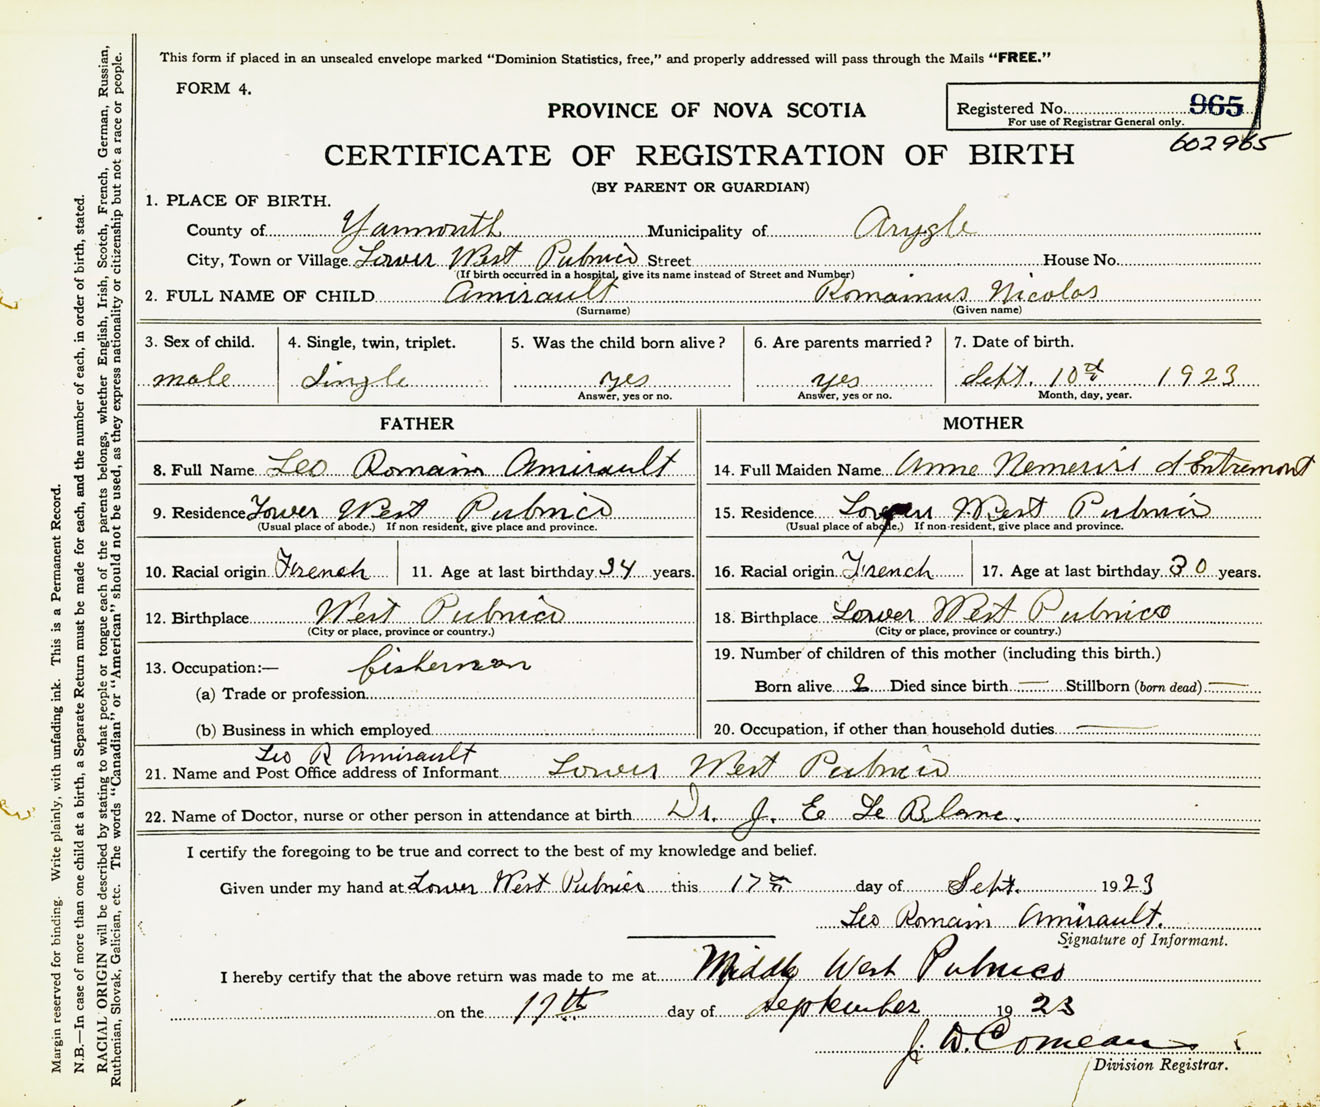 This form if placed in an unsealed envelope marked "Dominion Statistics, free," and properly addressed will pass through the Mails "FREE."
FORM 4.
PROVINCE OF NOVA SCOTIA
Registered No. 965
For use of Registrar General only.
602965
CERTIFICATE OF REGISTRATION OF BIRTH
(BY PARENT OR GUARDIAN)
1. PLACE OF BIRTH.
County of Yarmouth Municipality of Arygle
City, Town or Village Lower West Pubnico Street House No.
(If birth occurred in a hospital, give its name instead of Street and Number)
2. FULL NAME OF CHILD Amirault Romainus Nicolas
(Surname) (Given name)
3. Sex of child. 4. Single, twin, triplet. 5. Was the child born alive? 6. Are parents married? 7. Date of birth.
male Single yes yes Sept. 10th 1923
Answer, yes or no. Answer, yes or no. Month, day, year.
FATHER MOTHER
8. Full Name Leo Romain Amirault 14. Full Maiden Name Anne d'Entremont
9. Residence Lower West Pubnico 15. Residence Lower West Pubnico
(Usual place of abode.) If non resident, give place and province. (Usual place of abode.) If non-resident, give place and province.
10. Racial origin French 11. Age at last birthday 34 years. 16. Racial origin French 17. Age at last birthday 30 years.
12. Birthplace West Pubnico 18. Birthplace Lower West Pubnico
(City or place, province or country.) (City or place, province or country.)
13. Occupation:— fisherman 19. Number of children of this mother (including this birth.)
(a) Trade or profession Born alive 2 Died since birth — Stillborn (born dead) —
(b) Business in which employed 20. Occupation, if other than household duties —
Leo R Amirault
21. Name and Post Office address of Informant Lower West Pubnico
22. Name of Doctor, nurse or other person in attendance at birth Dr. J. E Le Blanc.
I certify the foregoing to be true and correct to the best of my knowledge and belief.
Given under my hand at Lower West Pubnico this 17th day of Sept. 1923
Leo Romain Amirault.
Signature of Informant.
I hereby certify that the above return was made to me at Middle West Pubnico
on the 17th day of september 1923
J. W. Comeau
Division Registrar.
Margin reserved for binding. Write plainly, with unfading ink. This is a Permanent Record.
N.B.—In case of more than one child at a birth, a Separate Return must be made for each, and the number of each, in order of birth, stated.
RACIAL ORIGIN will be described by stating to what people or tongue each of the parents belongs, whether English, Irish, Scotch, French, German, Russian,
Ruthenian, Slovak, Galician, etc. The words "Canadian" or "American" should not be used, as they express nationality or citizenship but not a race or people.